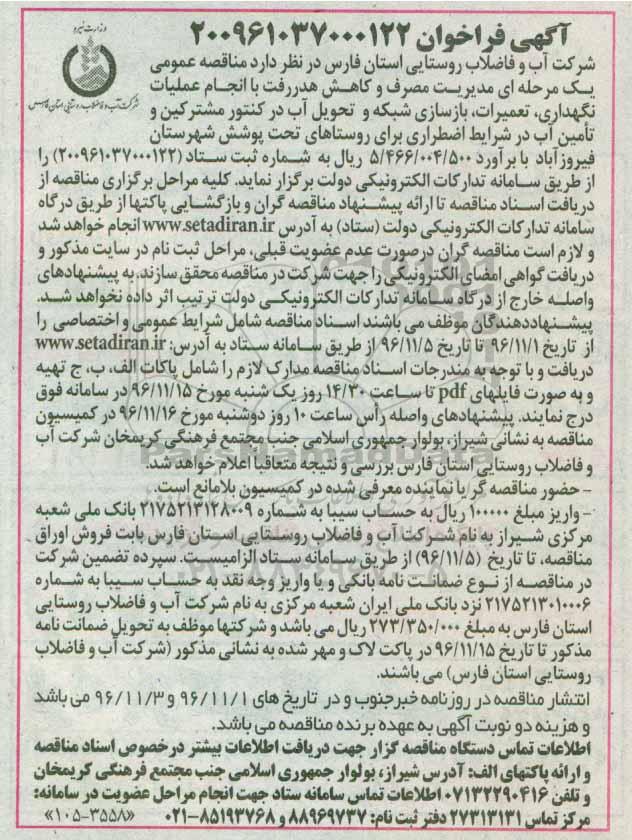 آگهی فراخوان ۲۰۰۹۶۱۰۳۷۰۰۰۱۲۲
وزارت نیرو
شرکت آب و فاضلاب روستایی استان فارس
شرکت آب و فاضلاب روستایی استان فارس در نظر دارد مناقصه عمومی
یک مرحله ای مدیریت مصرف و کاهش هدررفت با انجام عملیات
نگهداری، تعمیرات، بازسازی شبکه و تحویل آب در کنتور مشترکین و
تأمین آب در شرایط اضطراری برای روستاهای تحت پوشش شهرستان
فیروزآباد با برآورد ۵/۴۶۶/۰۰۴/۵۰۰ ریال به شماره ثبت ستاد (۲۰۰۹۶۱۰۳۷۰۰۰۱۲۲) را
از طریق سامانه تدارکات الکترونیکی دولت برگزار نماید. کلیه مراحل برگزاری مناقصه از
دریافت اسناد مناقصه تا ارائه پیشنهاد مناقصه گران و بازگشایی پاکتها از طریق درگاه
سامانه تدارکات الکترونیکی دولت (ستاد) به آدرس www.setadiran.ir انجام خواهد شد
و لازم است مناقصه گران درصورت عدم عضویت قبلی، مراحل ثبت نام در سایت مذکور و
دریافت گواهی امضای الکترونیکی را جهت شرکت در مناقصه محقق سازند. به پیشنهادهای
واصله خارج از درگاه سامانه تدارکات الکترونیکی دولت ترتیب اثر داده نخواهد شد.
پیشنهاددهندگان موظف می باشند اسناد مناقصه شامل شرایط عمومی و اختصاصی را
از تاریخ ۹۶/۱۱/۱ تا تاریخ ۹۶/۱۱/۵ از طریق سامانه ستاد به آدرس: www.setadiran.ir
دریافت و با توجه به مندرجات اسناد مناقصه مدارک لازم را شامل پاکات الف، ب، ج تهیه
و به صورت فایلهای pdf تا ساعت ۱۴/۳۰ روز یک شنبه مورخ ۹۶/۱۱/۱۵ در سامانه فوق
درج نمایند. پیشنهادهای واصله رأس ساعت ۱۰ روز دوشنبه مورخ ۹۶/۱۱/۱۶ در کمیسیون
مناقصه به نشانی شیراز، بولوار جمهوری اسلامی جنب مجتمع فرهنگی کریمخان شرکت آب
و فاضلاب روستایی استان فارس بررسی و نتیجه متعاقبا اعلام خواهد شد.
- حضور مناقصه گر یا نماینده معرفی شده در کمیسیون بلامانع است.
- واریز مبلغ ۱۰۰۰۰۰ ریال به حساب سیبا به شماره ۲۱۷۵۲۱۳۱۲۸۰۰۹ بانک ملی شعبه
مرکزی شیراز به نام شرکت آب و فاضلاب روستایی استان فارس بابت فروش اوراق
مناقصه، تا تاریخ (۹۶/۱۱/۵) از طریق سامانه ستاد الزامیست. سپرده تضمین شرکت
در مناقصه از نوع ضمانت نامه بانکی و یا واریز وجه نقد به حساب سیبا به شماره
۲۱۷۵۲۱۳۰۱۰۰۰۶ نزد بانک ملی ایران شعبه مرکزی به نام شرکت آب و فاضلاب روستایی
استان فارس به مبلغ ۲۷۳/۳۵۰/۰۰۰ ریال می باشد و شرکتها موظف به تحویل ضمانت نامه
مذکور تا تاریخ ۹۶/۱۱/۱۵ در پاکت لاک و مهر شده به نشانی مذکور (شرکت آب و فاضلاب
روستایی استان فارس) می باشند.
انتشار مناقصه در روزنامه خبرجنوب و در تاریخ های ۹۶/۱۱/۱ و ۹۶/۱۱/۳ می باشد
و هزینه دو نوبت آگهی به عهده برنده مناقصه می باشد.
اطلاعات تماس دستگاه مناقصه گزار جهت دریافت اطلاعات بیشتر درخصوص اسناد مناقصه
و ارائه پاکتهای الف: آدرس شیراز، بولوار جمهوری اسلامی جنب مجتمع فرهنگی کریمخان
و تلفن ۰۷۱۳۲۲۹۰۴۱۶ اطلاعات تماس سامانه ستاد جهت انجام مراحل عضویت در سامانه:
مرکز تماس ۲۷۳۱۳۱۳۱ دفتر ثبت نام: ۸۸۹۶۹۷۳۷ و ۸۵۱۹۳۷۶۸-۰۲۱
«۱۰۵-۳۵۵۸»
ParsNamadData